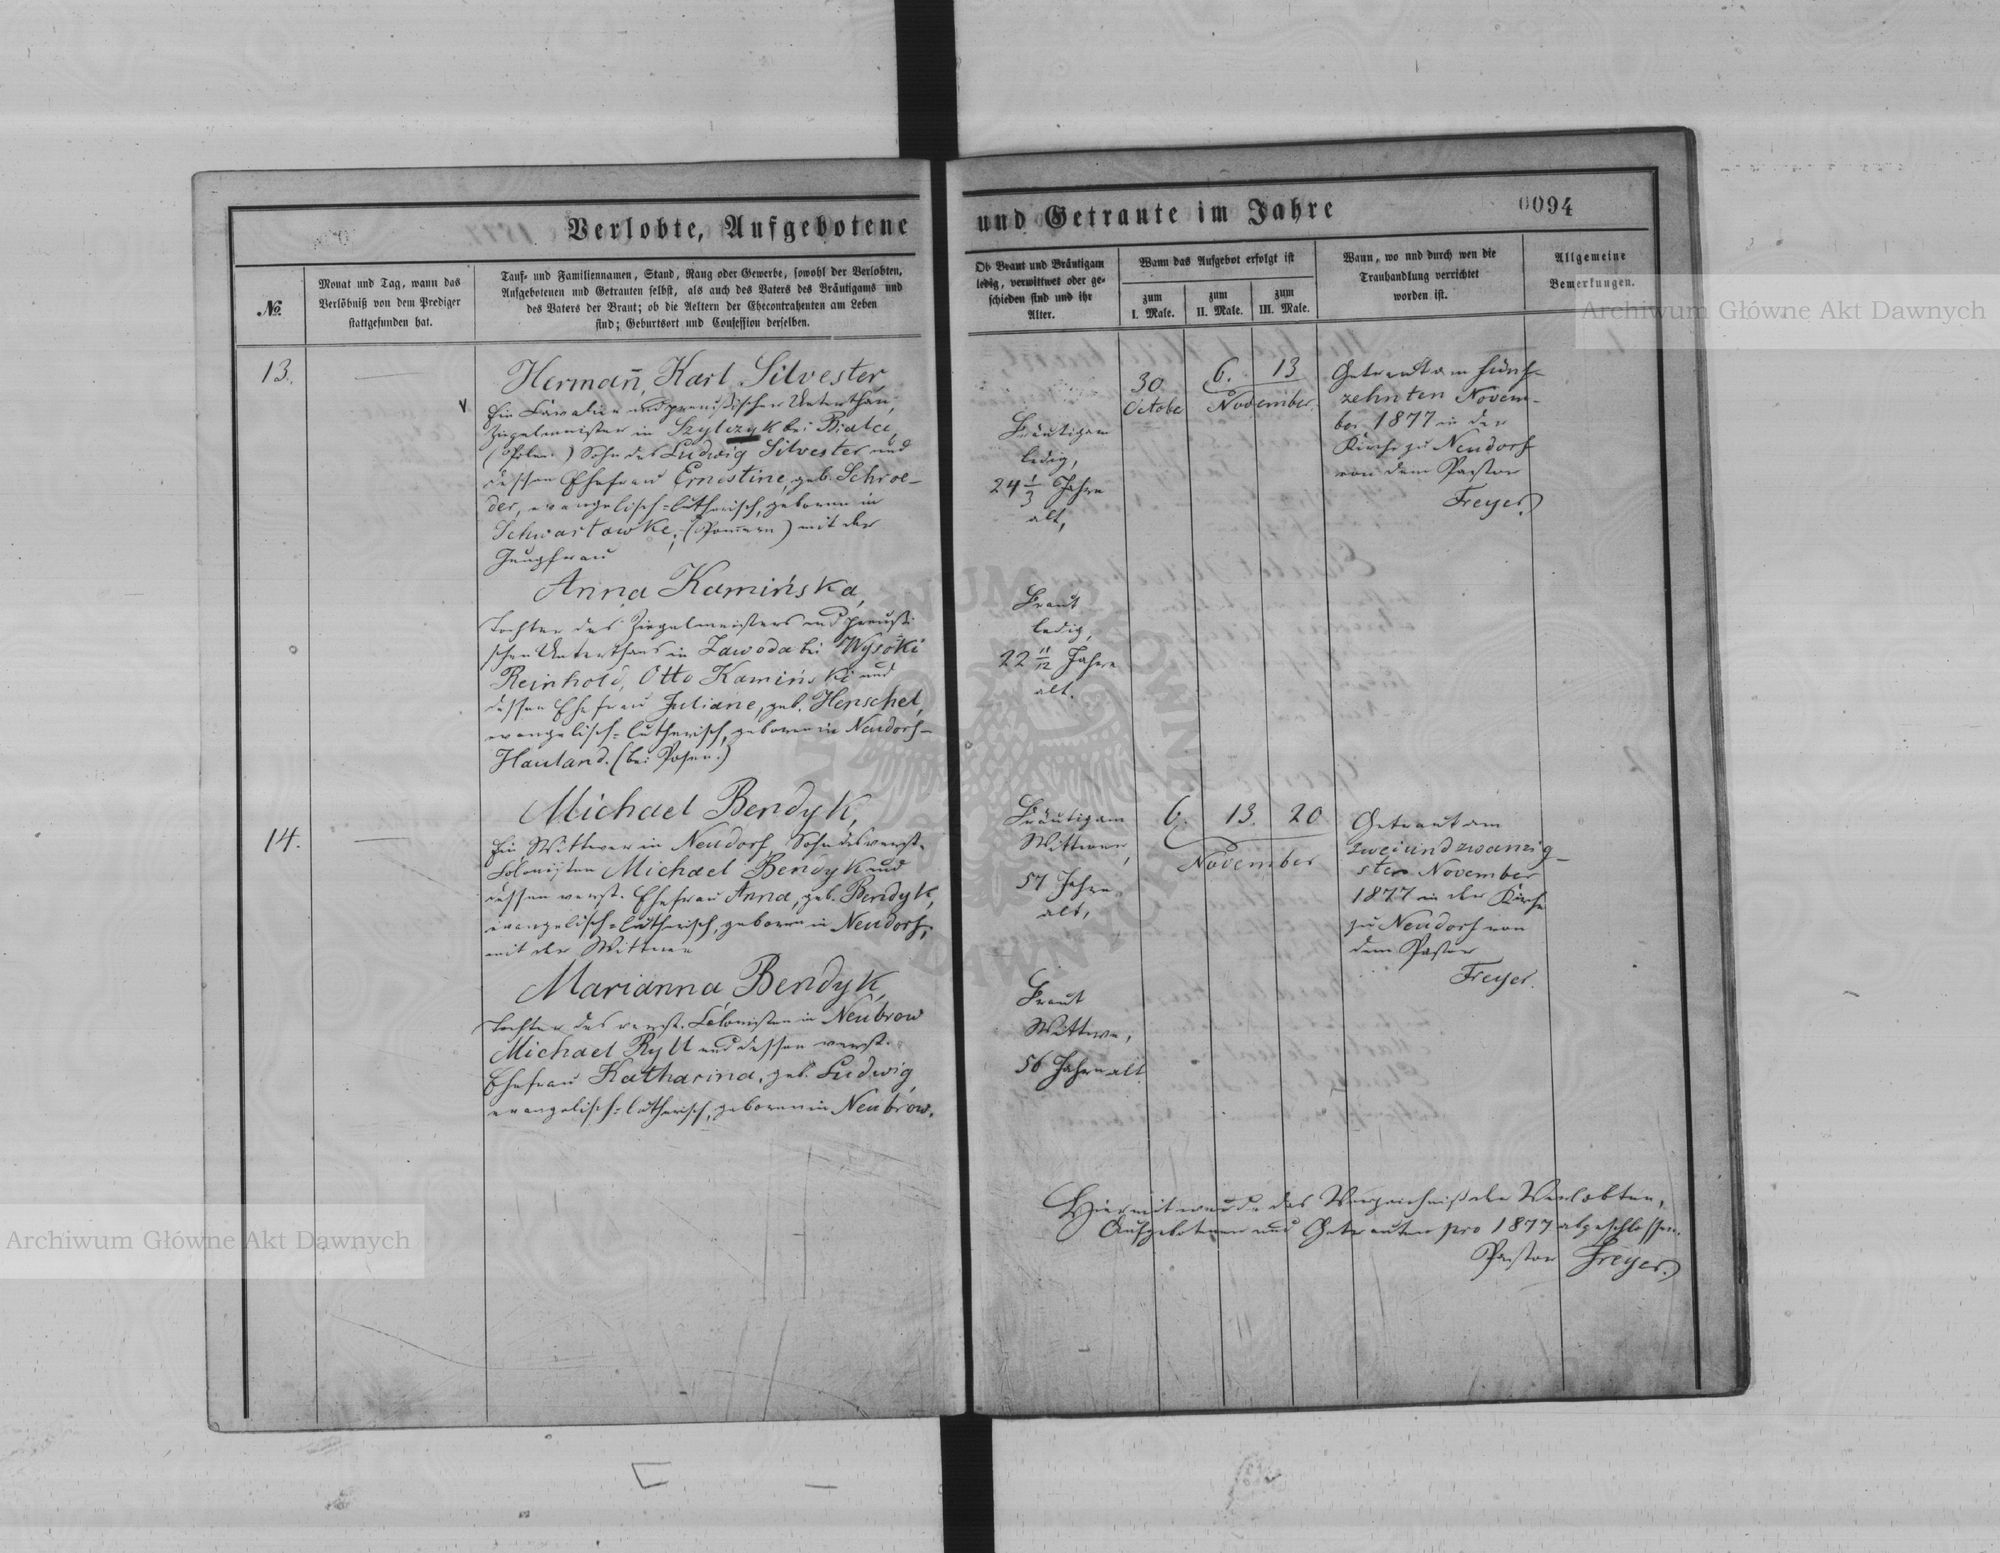 Verlobte, Aufgebotene und Getraute im Jahre
0094
№
Monat und Tag, wann das
Verlöbniß von dem Prediger
stattgefunden hat.
Tauf- und Familiennamen, Stand, Rang oder Gewerbe, sowohl der Verlobten,
Aufgebotenen und Getrauten selbst, als auch des Vaters des Bräutigams und
des Vaters der Braut; ob die Aeltern der Ehecontrahenten am Leben
sind; Geburtsort und Confession derselben.
Ob Braut und Bräutigam
ledig, verwittwet oder ge-
schieden sind und ihr
Alter.
Wann das Aufgebot erfolgt ist
zum
I. Male.
zum
II. Male.
zum
III. Male.
Wann, wo und durch wen die
Trauhandlung verrichtet
worden ist.
Allgemeine
Bemerkungen.
13.
Hermañ, Karl Silvester,
Ein Cavalier und preußischer Unterthan,
Ziegelmeister in Szylczyk bei Bialce,
(Polen.) Sohn des Ludwig Silvester und
dessen Ehefrau Ernestine, geb. Schroe-
der, evangelisch-lutherisch, geboren in
Schwartowke, (Pom̄ern) mit der
Jungfrau
Anna Kamińska,
Tochter des Ziegelmeisters und preußi-
schen Unterthans in Zawoda bei Wysoki
Reinhold, Otto Kamiński und
dessen Ehefrau Juliane, geb. Henschel,
evangelisch-lutherisch, geboren in Neudorf-
Hauland. (bei Posen.)
Bräutigam
ledig,
24 1/3 Jahre
alt,
Braut
ledig,
22 11/12 Jahre
alt.
30
October
6. 13
November.
Getraut am fünf-
zehnten Novem-
ber 1877 in der
Kirche zu Neudorf
von dem Pastor
Freyer.
14.
Michael Bendyk,
Ein Wittwer in Neudorf, Sohn des verst.
Colonisten Michael Bendyk und
dessen verst. Ehefrau Anna, geb. Bendyk,
evangelisch-lutherisch, geboren in Neudorf,
mit der Wittwe
Marianna Bendyk,
Tochter des verst. Colonisten in Neubrow
Michael Ryll und dessen verst.
Ehefrau Katharina, geb. Ludwig,
evangelisch-lutherisch, geboren in Neubrow.
Bräutigam
Wittwer,
57 Jahre
alt,
Braut
Wittwe,
56 Jahre alt
6. 13. 20
November
Getraut am
zweiundzwanzig-
sten November
1877 in der Kirche
zu Neudorf von
dem Pastor
Freyer.
Hiermit wurde das Verzeichniß der Verlobten,
Aufgebotenen und Getrauten pro 1877 abgeschlossen.
Pastor Freyer.
Archiwum Główne Akt Dawnych
Archiwum Główne Akt Dawnych